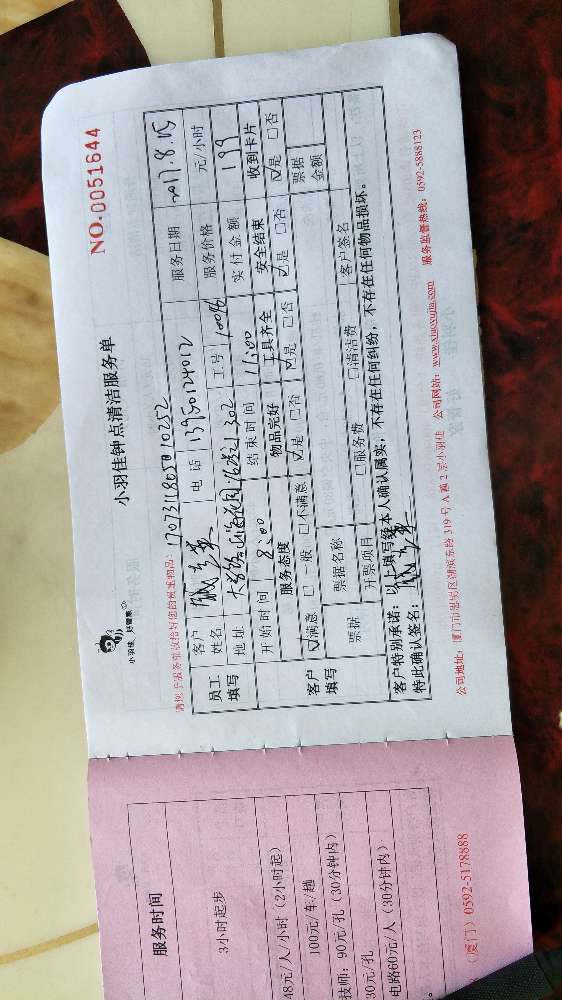 小羽佳 好管家
小羽佳钟点清洁服务单
NO.0051644
1707311805010252
员工填写
客户姓名
电话 13950124012
服务日期 2017.8.15
地址
302
工号
服务价格 元/小时
开始时间 8:00
结束时间 11:00
实付金额 199
客户填写
服务态度
物品完好
工具齐全
安全结束
收到卡片
☑满意 □一般 □不满意
☑是 □否
☑是 □否
☑是 □否
☑是 □否
票据
票据名称
票据金额
开票项目
□服务费 □清洁费
客户签名
客户特别承诺：以上填写经本人确认属实，不存在任何纠纷，不存在任何物品损坏。
特此确认签名：
公司地址：厦门市思明区湖滨东路 319 号 A 栋 2 层小羽佳 公司网站：www.xiaoyujia.com 服务监督热线：0592-5888123
服务时间
3小时起步
48元/人/小时（2小时起）
100元/车/趟
技师：90元/孔（30分钟内）
30元/孔
电路60元/人（30分钟内）
（厦门）0592-5178888